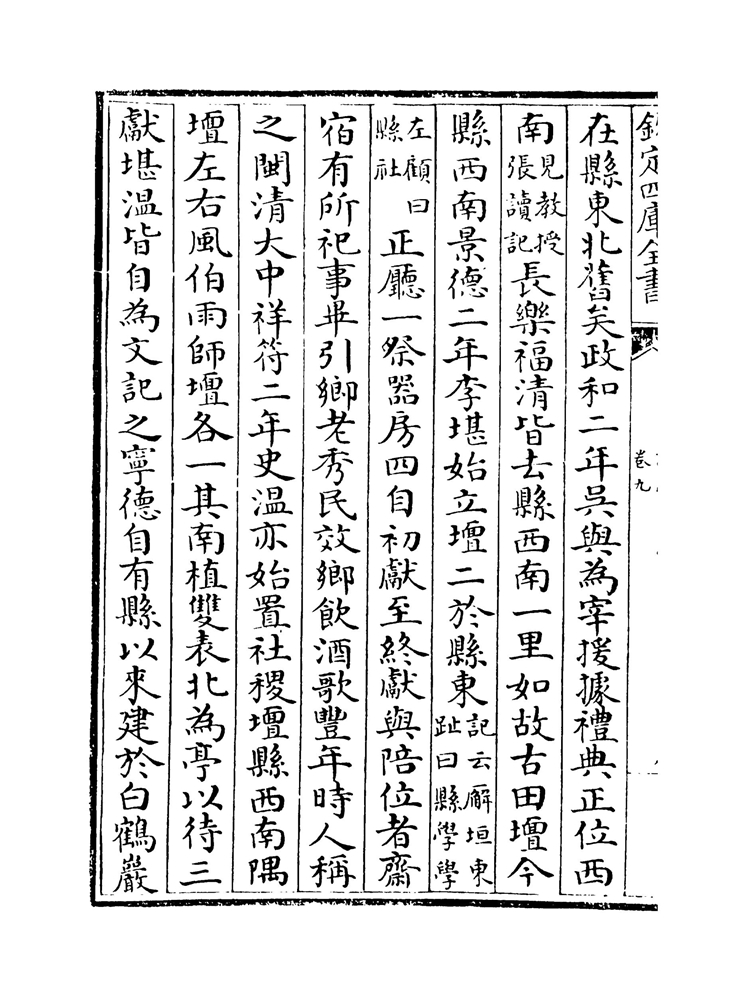 欽定四庫全書
卷九
在縣東北舊矣政和二年吳與為宰援據禮典正位西
南見教授張讀記長樂福清皆去縣西南一里如故古田壇今
縣西南景德二年李堪始立壇二於縣東記云廨垣東趾曰縣學學
左顧曰縣社正廳一祭器房四自初獻至終獻與陪位者齋
宿有所祀事畢引鄉老秀民效鄉飲酒歌豐年時人稱
之閩清大中祥符二年史溫亦始置社稷壇縣西南隅
壇左右風伯雨師壇各一其南植雙表北為亭以待三
獻堪溫皆自為文記之寧德自有縣以來建於白鶴巖